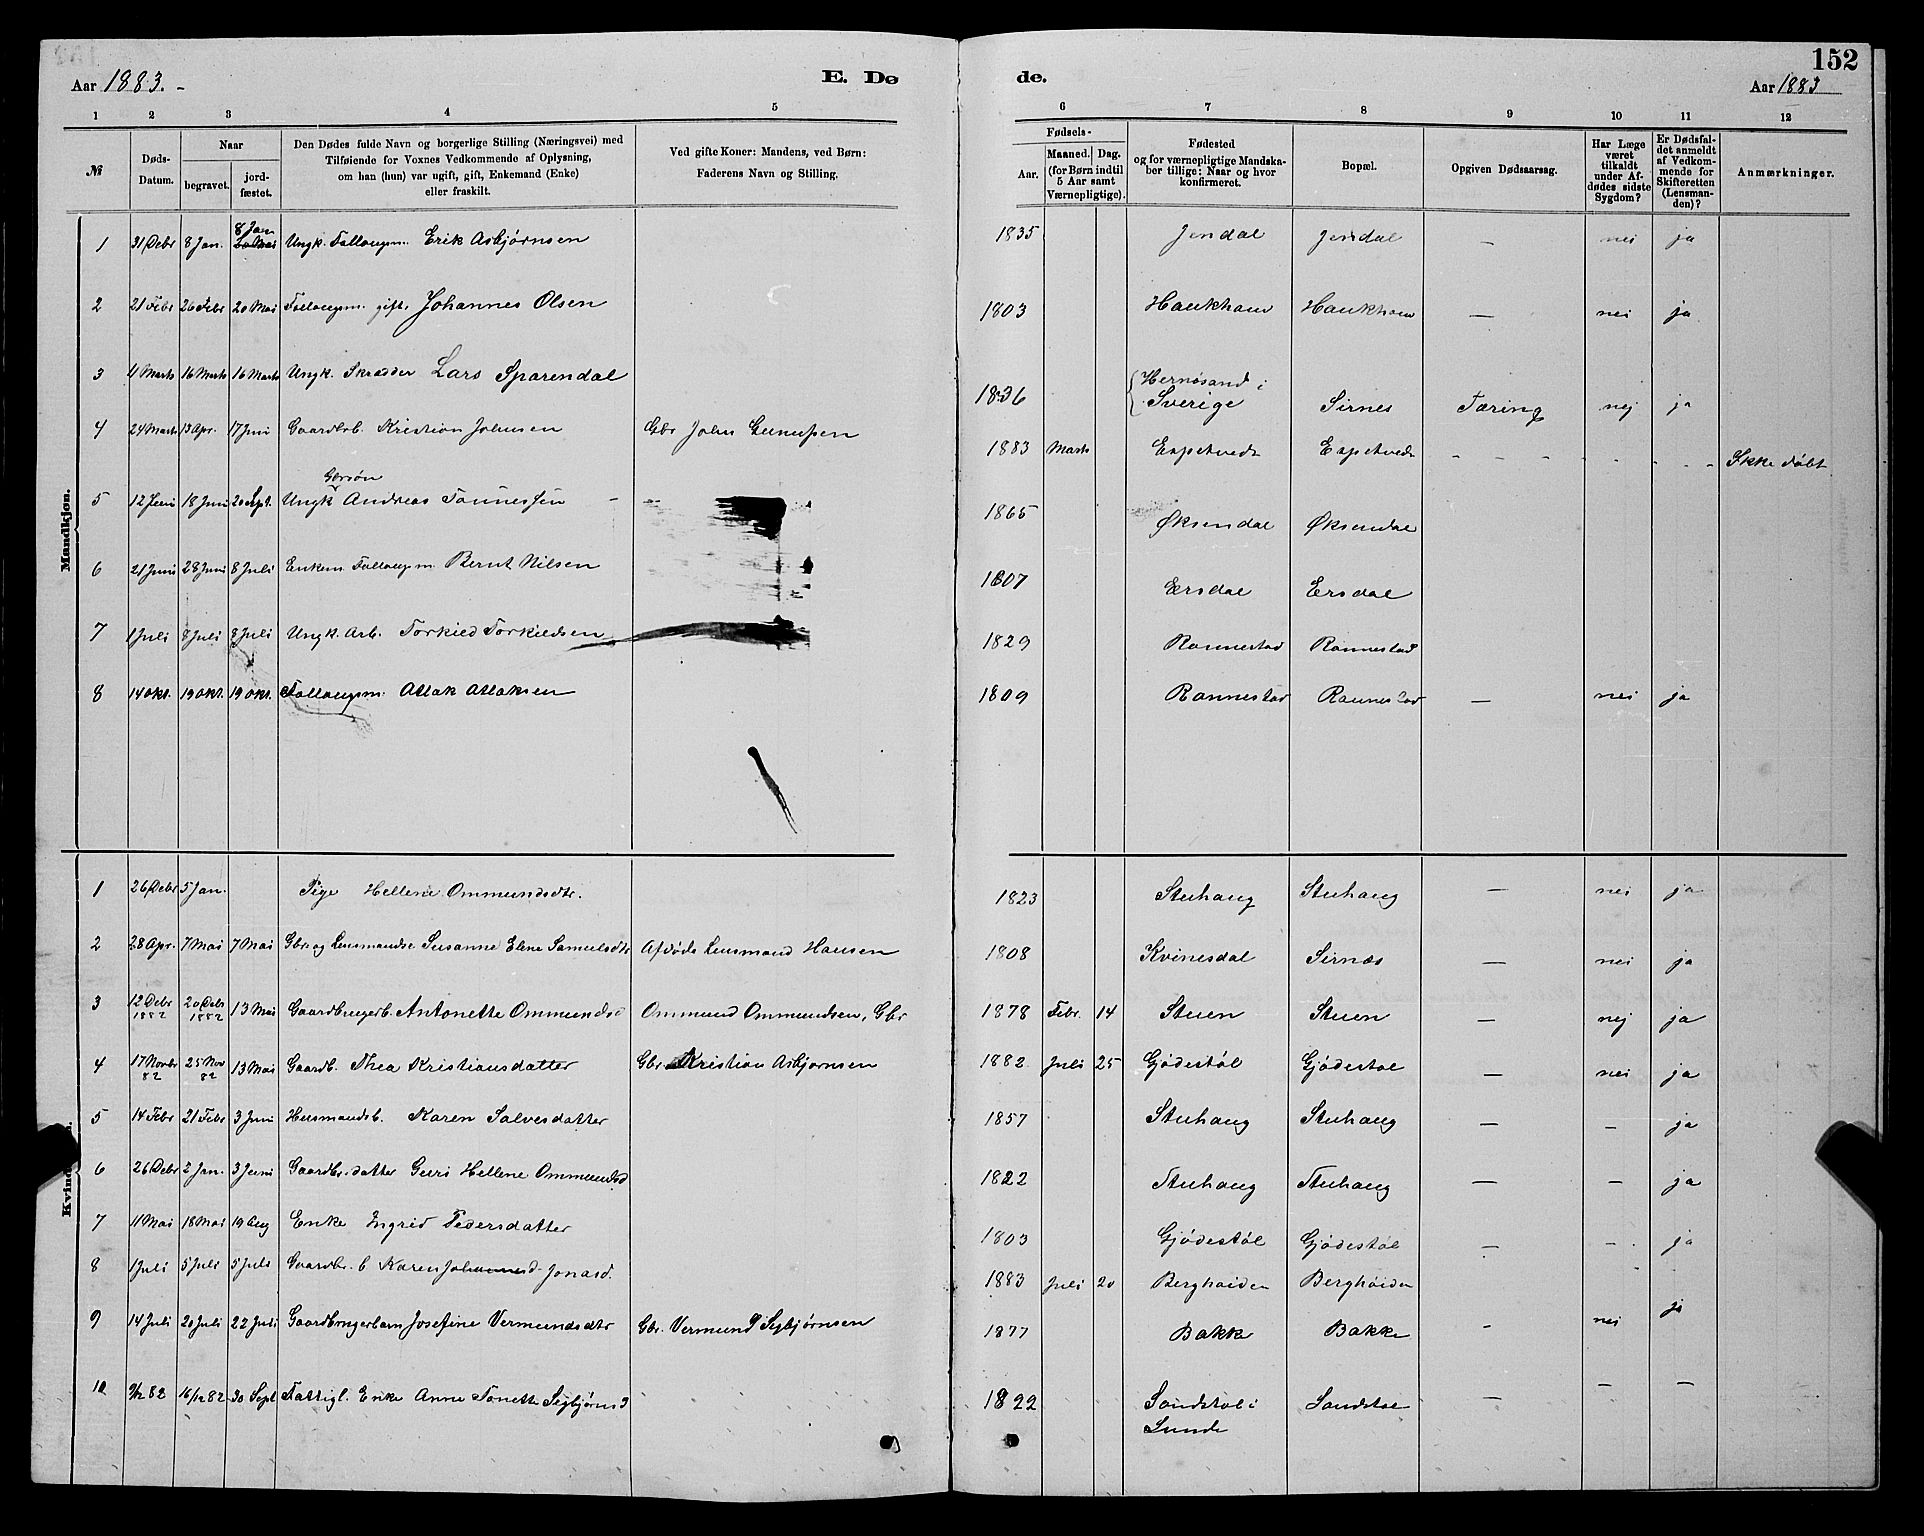 152
Aar 1883.
E. Dø
de.
Aar 1883
1 2 3 4 5 6 7 8 9 10 11 12
№
Døds-Datum.
Naar
begravet.
jord-fæstet.
Den Dødes fulde Navn og borgerlige Stilling (Næringsvei) med
Tilføiende for Voxnes Vedkommende af Oplysning,
om han (hun) var ugift, gift, Enkemand (Enke)
eller fraskilt.
Ved gifte Koner: Mandens, ved Børn:
Faderens Navn og Stilling.
Fødsels-
Aar.
Maaned. Dag.
(for Børn indtil
5 Aar samt
Værnepligtige).
Fødested
og for værnepligtige Mandska-
ber tillige: Naar og hvor
konfirmeret.
Bopæl.
Opgiven Dødsaarsag.
Har Læge
været
tilkaldt
under Af-
dødes sidste
Sygdom?
Er Dødsfal-
det anmeldt
af Vedkom-
mende for
Skifteretten
(Lensman-
den)?
Anmærkninger.
Mandkjøn.
8 Jan
1 31 Debr 8 Jan. Ungk. Erik Asbjørnsen 1835 Jendal Jendal — nei ja
2 21 Febr 26 Febr 20 Mai gift. Johannes Olsen 1803 Haukhom Haukhom — nei ja
3 4 Marts 16 Marts 16 Marts Ungk. Skrædder Lars Sparendal 1836 Hernøsand i
Sverige Sirnes Tæring nej ja
4 24 Marts 13 Apr. 17 Juni Gaardbrb. Kristian Johnsen Gbr John 1883 Marts Espetvedt Espetvedt - - - - - - - Ikke døbt
Gbrsøn
5 12 Juni 18 Juni 20 Sept. Ungk Andreas Tønnessen 1865 Øksendal Øksendal
6 21 Juni 28 Juni 8 Juli Enkem Bernt Nilsen 1807 Ersdal Ersdal
7 1 Juli 8 Juli 8 Juli Ungk. Arb. Torkild Torkildsen 1829 Rannestad Rannestad
8 14 Okt. 19 Okt. 19 Okt. Atlak Atlaksen 1809 Rannestad Rannestad — nei ja
1 26 Debr 5 Jan. Pige Hellene Ommundsdtr. 1823 Stuhaug Stuhaug — nei ja
2 28 Apr. 7 Mai 7 Mai Gbr og Susanne Elene Samuelsdtr Afdøde Lensmand Hansen 1808 Kvinesdal Sirnæs — nei ja
3 12 Debr 1882 20 Debr 1882 13 Mai Gaardbrugerb. Antonette Ommundsd Ommund Ommundsen, Gbr 1878 Febr. 14 Stuen Stuen — nej ja
4 17 Novbr 82 25 Nov 82 13 Mai Gaardb. Thea Kristiansdatter Gbr. Kristian Asbjørnsen 1882 Juli 25 Gjødestøl Gjødestøl — nei ja
5 14 Febr 21 Febr 3 Juni Husmandsb. Karen Salvesdatter 1857 Stuhaug Stuhaug — — ja
6 26 Debr 2 Jan. 3 Juni Gaardbr.datter Guri Hellene Ommundsd 1822 Stuhaug Stuhaug — — ja
7 11 Mai 18 Mai 19 Aug Enke Ingrid Pedersdatter 1803 Gjødestøl Gjødestøl — — ja
8 1 Juli 5 Juli 5 Juli Gaardbr. b Karen Jonasd. 1883 Juli 20 Berghøiden Berghøiden
9 14 Juli 20 Juli 22 Juli Gaardbrugerbarn Josefine Vermundsdtr Gbr. Vermund Sigbjørnsen 1877 Bakke Bakke — nei ja
10 9/12 82 16/12 82 30 Sept Fattigl. Enke Anne Tonette Sigbjørnsd 1822 Sandstøl i Sandstøl — — —
Lunde